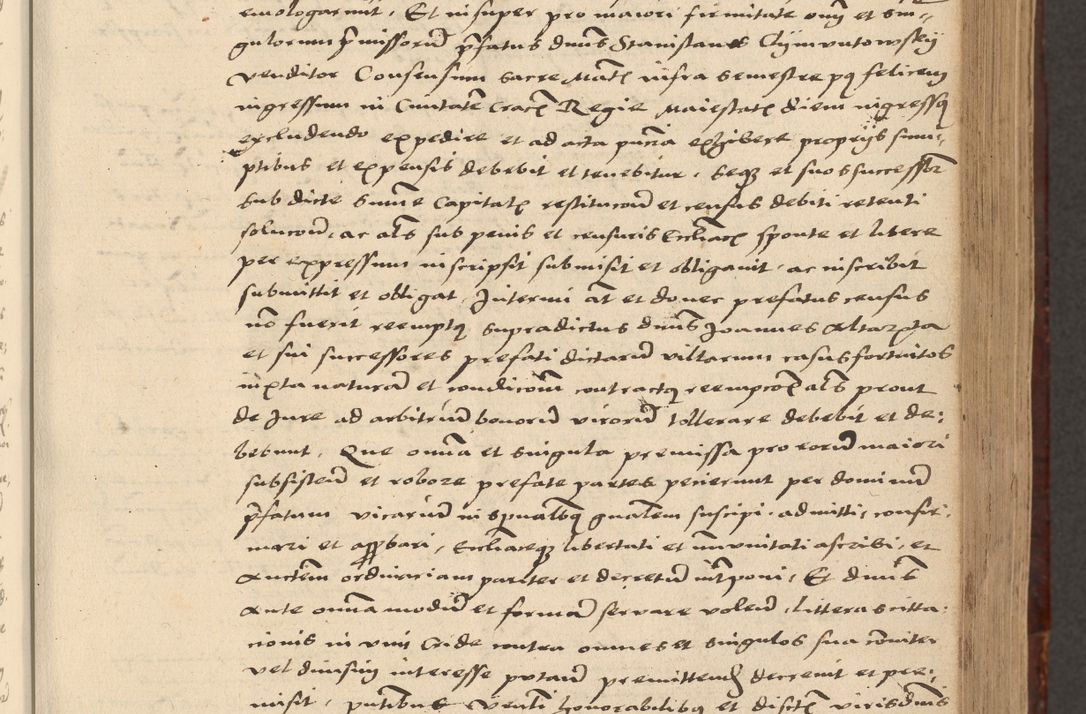 emologarunt, Et insuper pro maiori firmitate oim et sin-
gulorum pmissorū pfatus dnus Stanislaus Gymuntowsky
venditor Consensum sacre Matis infra semestre pq felicem
ingressum in Civitatē Crac Regie Maiestatis diem ingressq
excludendo expedire et ad acta pntia exhibere proprijs sum-
ptibus et expensis debebit et tenebitur, seq et suos successores
sub dicte summe Capitalis restitucōn et census debiti retenti
solucōn, ac als sub penis et censuris Ecclīacis sponte et libere
per expressum inscripsit submisit et obligavit, ac inscribit
submittit et obligat, Interim at et donec prefatus census
nō fuerit reemptq supradictus dnus Joannes Altarista
et sui successores prefati dictarū villarum casus fortuitos
iuxta naturā et condicōem contractq reempcōis als prout
de Jure ad arbitriū bonorū virorū tollerare debebit et de:
bebunt, Que omnia et singula premissa pro eorū maiori
subsistenū et robore prefate partes petierunt per dominū
pfatum vicariū in spualibq gnalem suscipi, admitti, confir:
mari et approbari, Eccliaceq libertati et immunitati ascribi, et
Auctem ordinariam pariter et decretū interponi, Et dnus
Ante omnia modū et formā servare volens, litteras citta:
cionis in vim Cride contra omnes et singulos sua cōmiter
vel divisim interesse putan premittend decrevit et per:
misit, putibus Venlī honorabilibq et discretis viris dnis